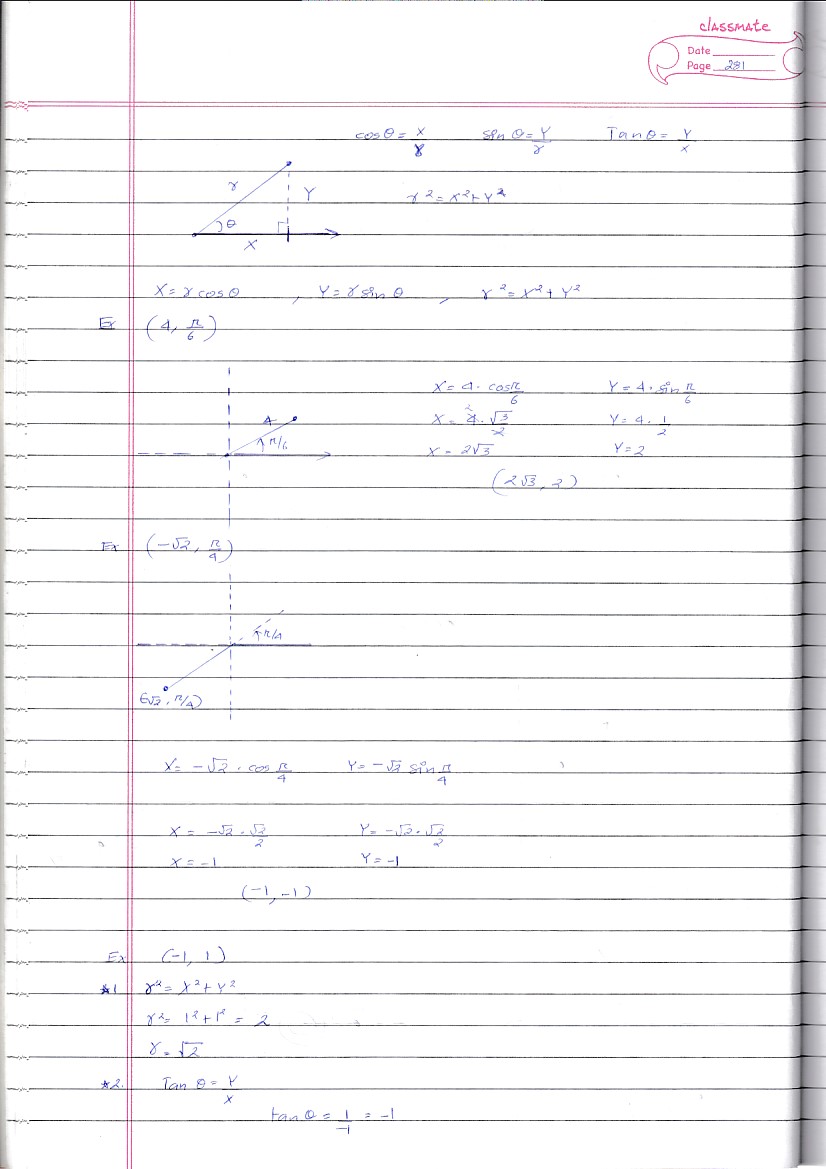 classmate
Date
Page 281
cosθ = x/r sinθ = Y/r Tanθ = Y/x
r
Y
r² = x² + Y²
θ
X
X = r cosθ , Y = r sinθ , r² = X² + Y²
Ex (4, π/6)
X = 4 · cos π/6 Y = 4 · sin π/6
4
X = 4 · √3/2 Y = 4 · 1/2
2
π/6
X = 2√3 Y = 2
(2√3, 2)
Ex (-√2, π/4)
π/4
(-√2, π/4)
X = -√2 · cos π/4 Y = -√2 sin π/4
X = -√2 · √2/2 Y = -√2 · √2/2
X = -1 Y = -1
(-1, -1)
Ex (-1, 1)
*1 r² = X² + Y²
r² = 1² + 1² = 2
r = √2
*2. Tan θ = Y/x
tan θ = 1/-1 = -1